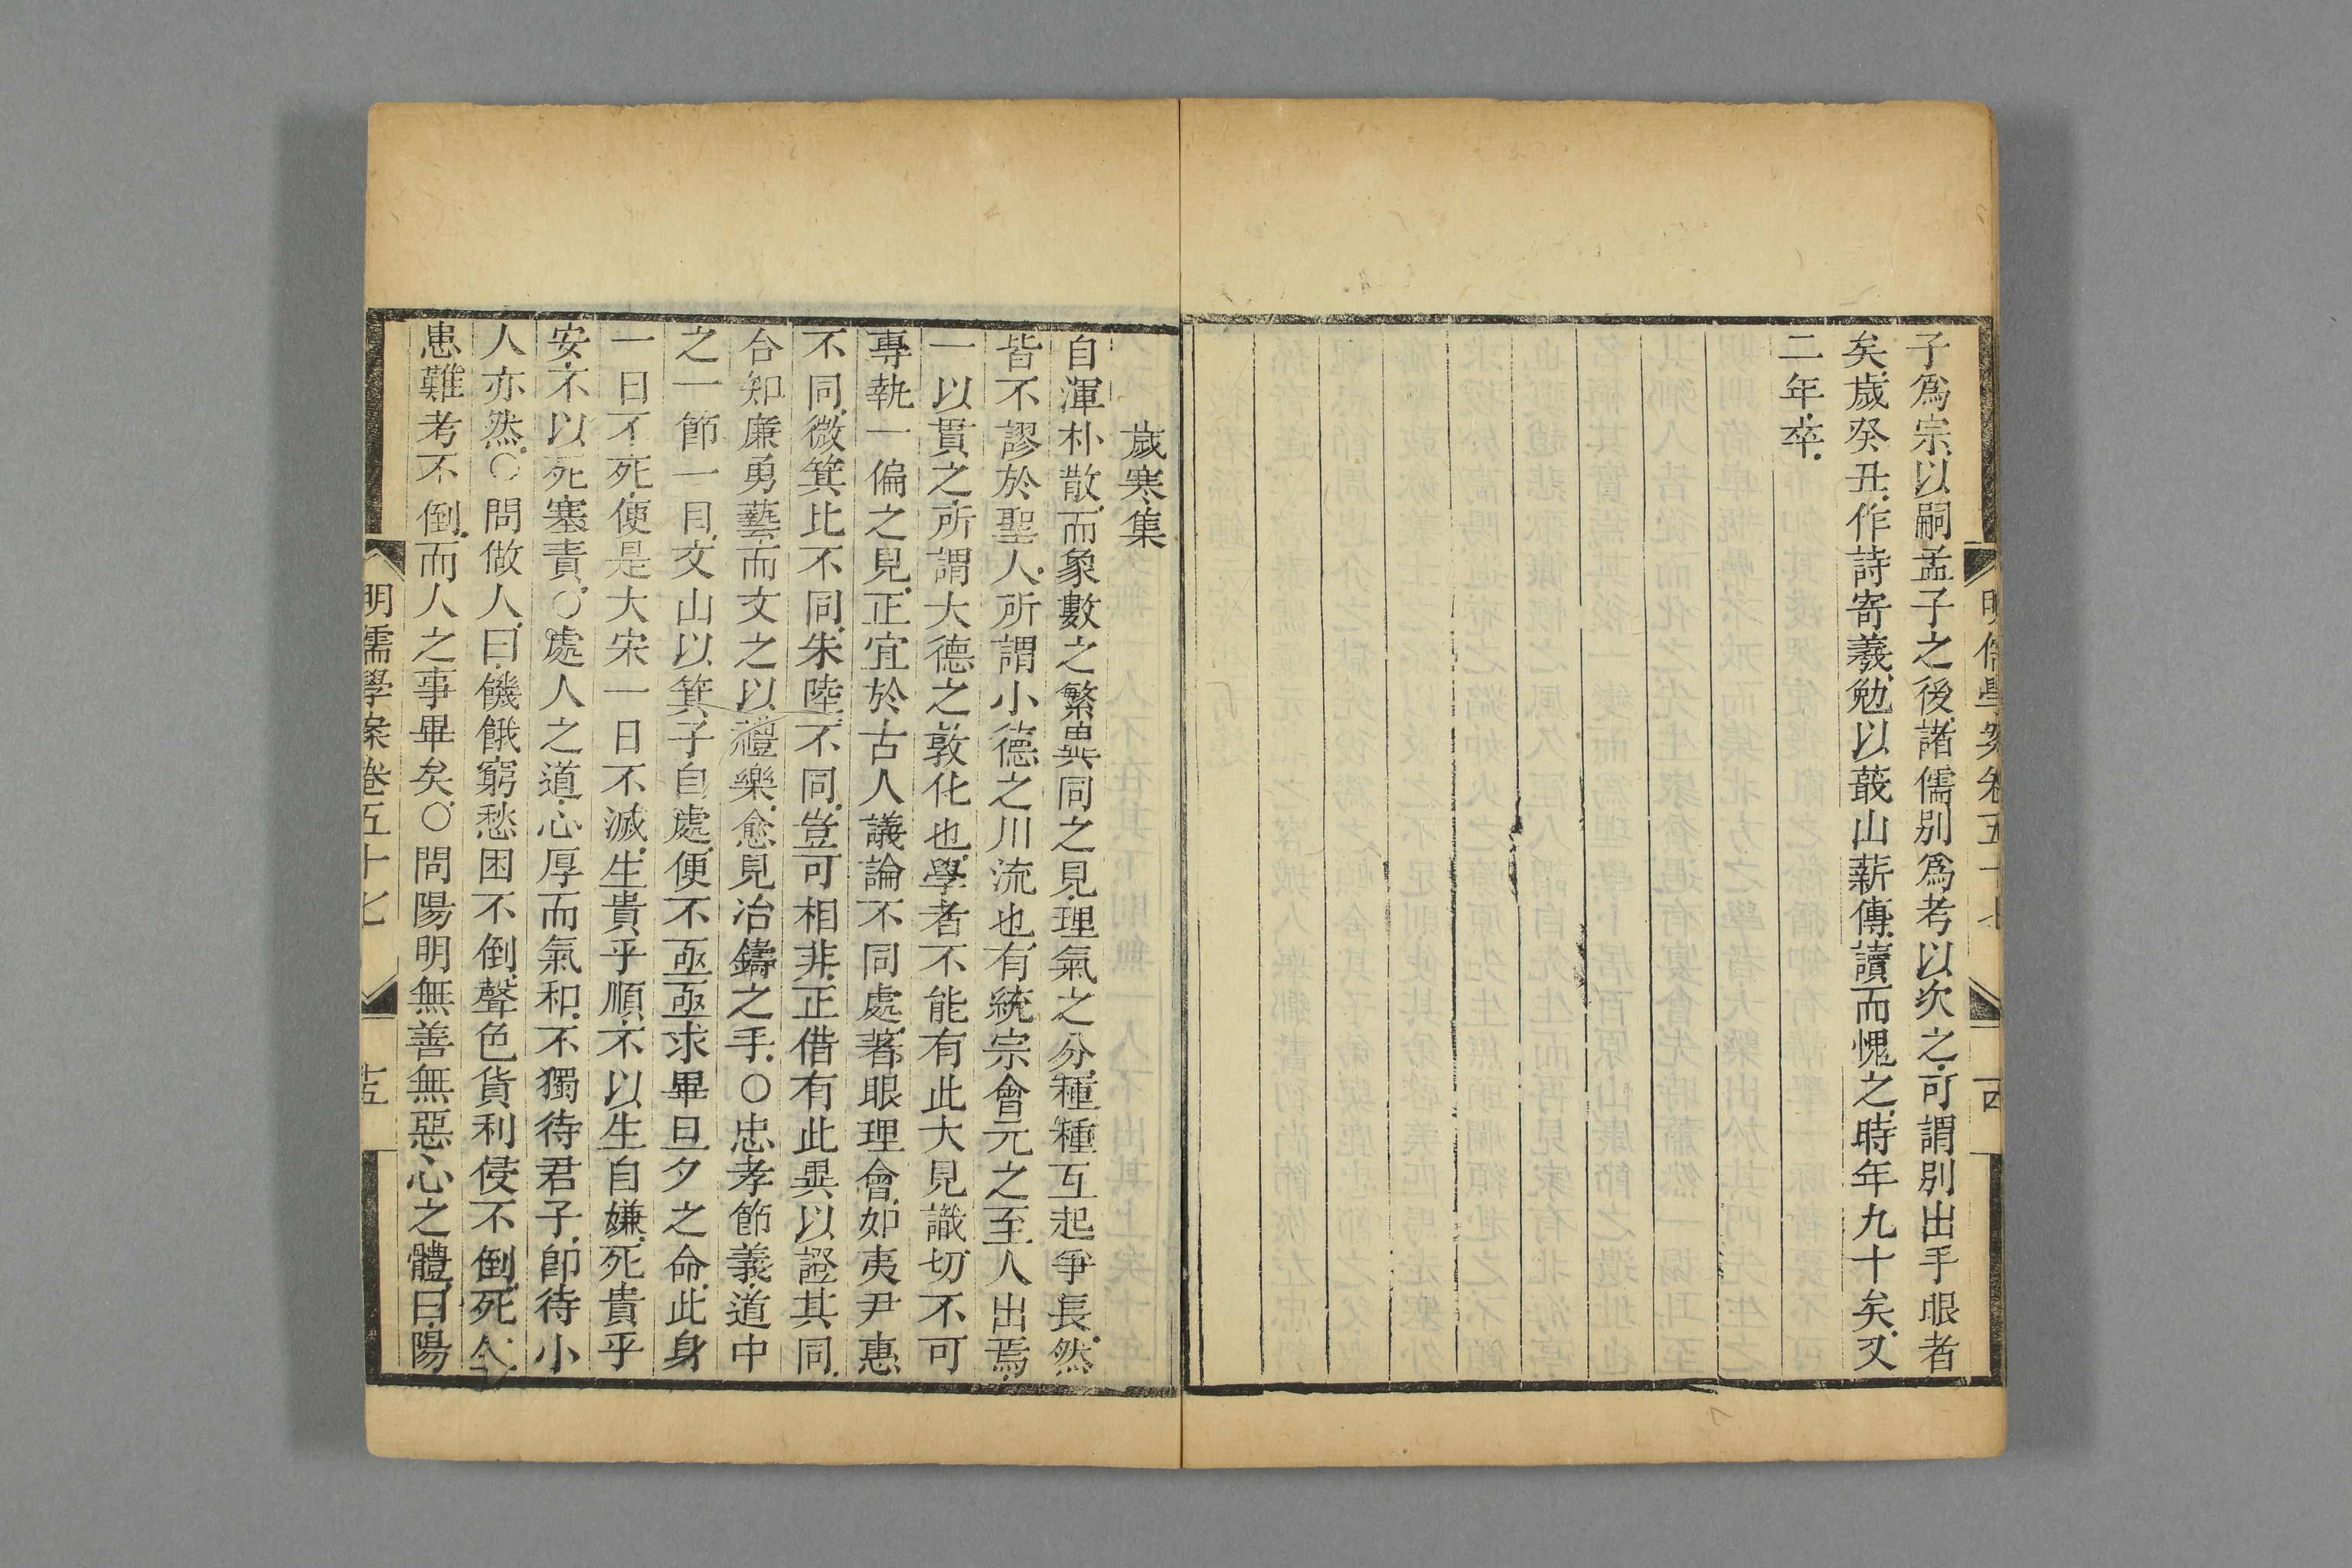 子爲宗以嗣孟子之後諸儒別爲考以次之可謂別出手眼者
矣歲癸丑作詩寄羲勉以蕺山薪傳讀而愧之時年九十矣又
二年卒
歲寒集
自渾朴散而象數之繁異同之見理氣之分種種互起爭長然
皆不謬於聖人所謂小德之川流也有統宗會元之至人出焉
一以貫之所謂大德之敦化也學者不能有此大見識切不可
專執一偏之見正宜於古人議論不同處著眼理會如夷尹惠
不同微箕比不同朱陸不同豈可相非正借有此異以證其同
合知廉勇藝而文之以禮樂愈見冶鑄之手○忠孝節義道中
之一節一目文山以箕子自處便不亟亟求畢旦夕之命此身
一日不死便是大宋一日不滅生貴乎順不以生自嫌死貴乎
安不以死塞責○處人之道心厚而氣和不獨待君子卽待小
人亦然○問做人曰饑餓窮愁困不倒聲色貨利侵不倒死人
患難考不倒而人之事畢矣○問陽明無善無惡心之體曰陽
明儒學案卷五十七